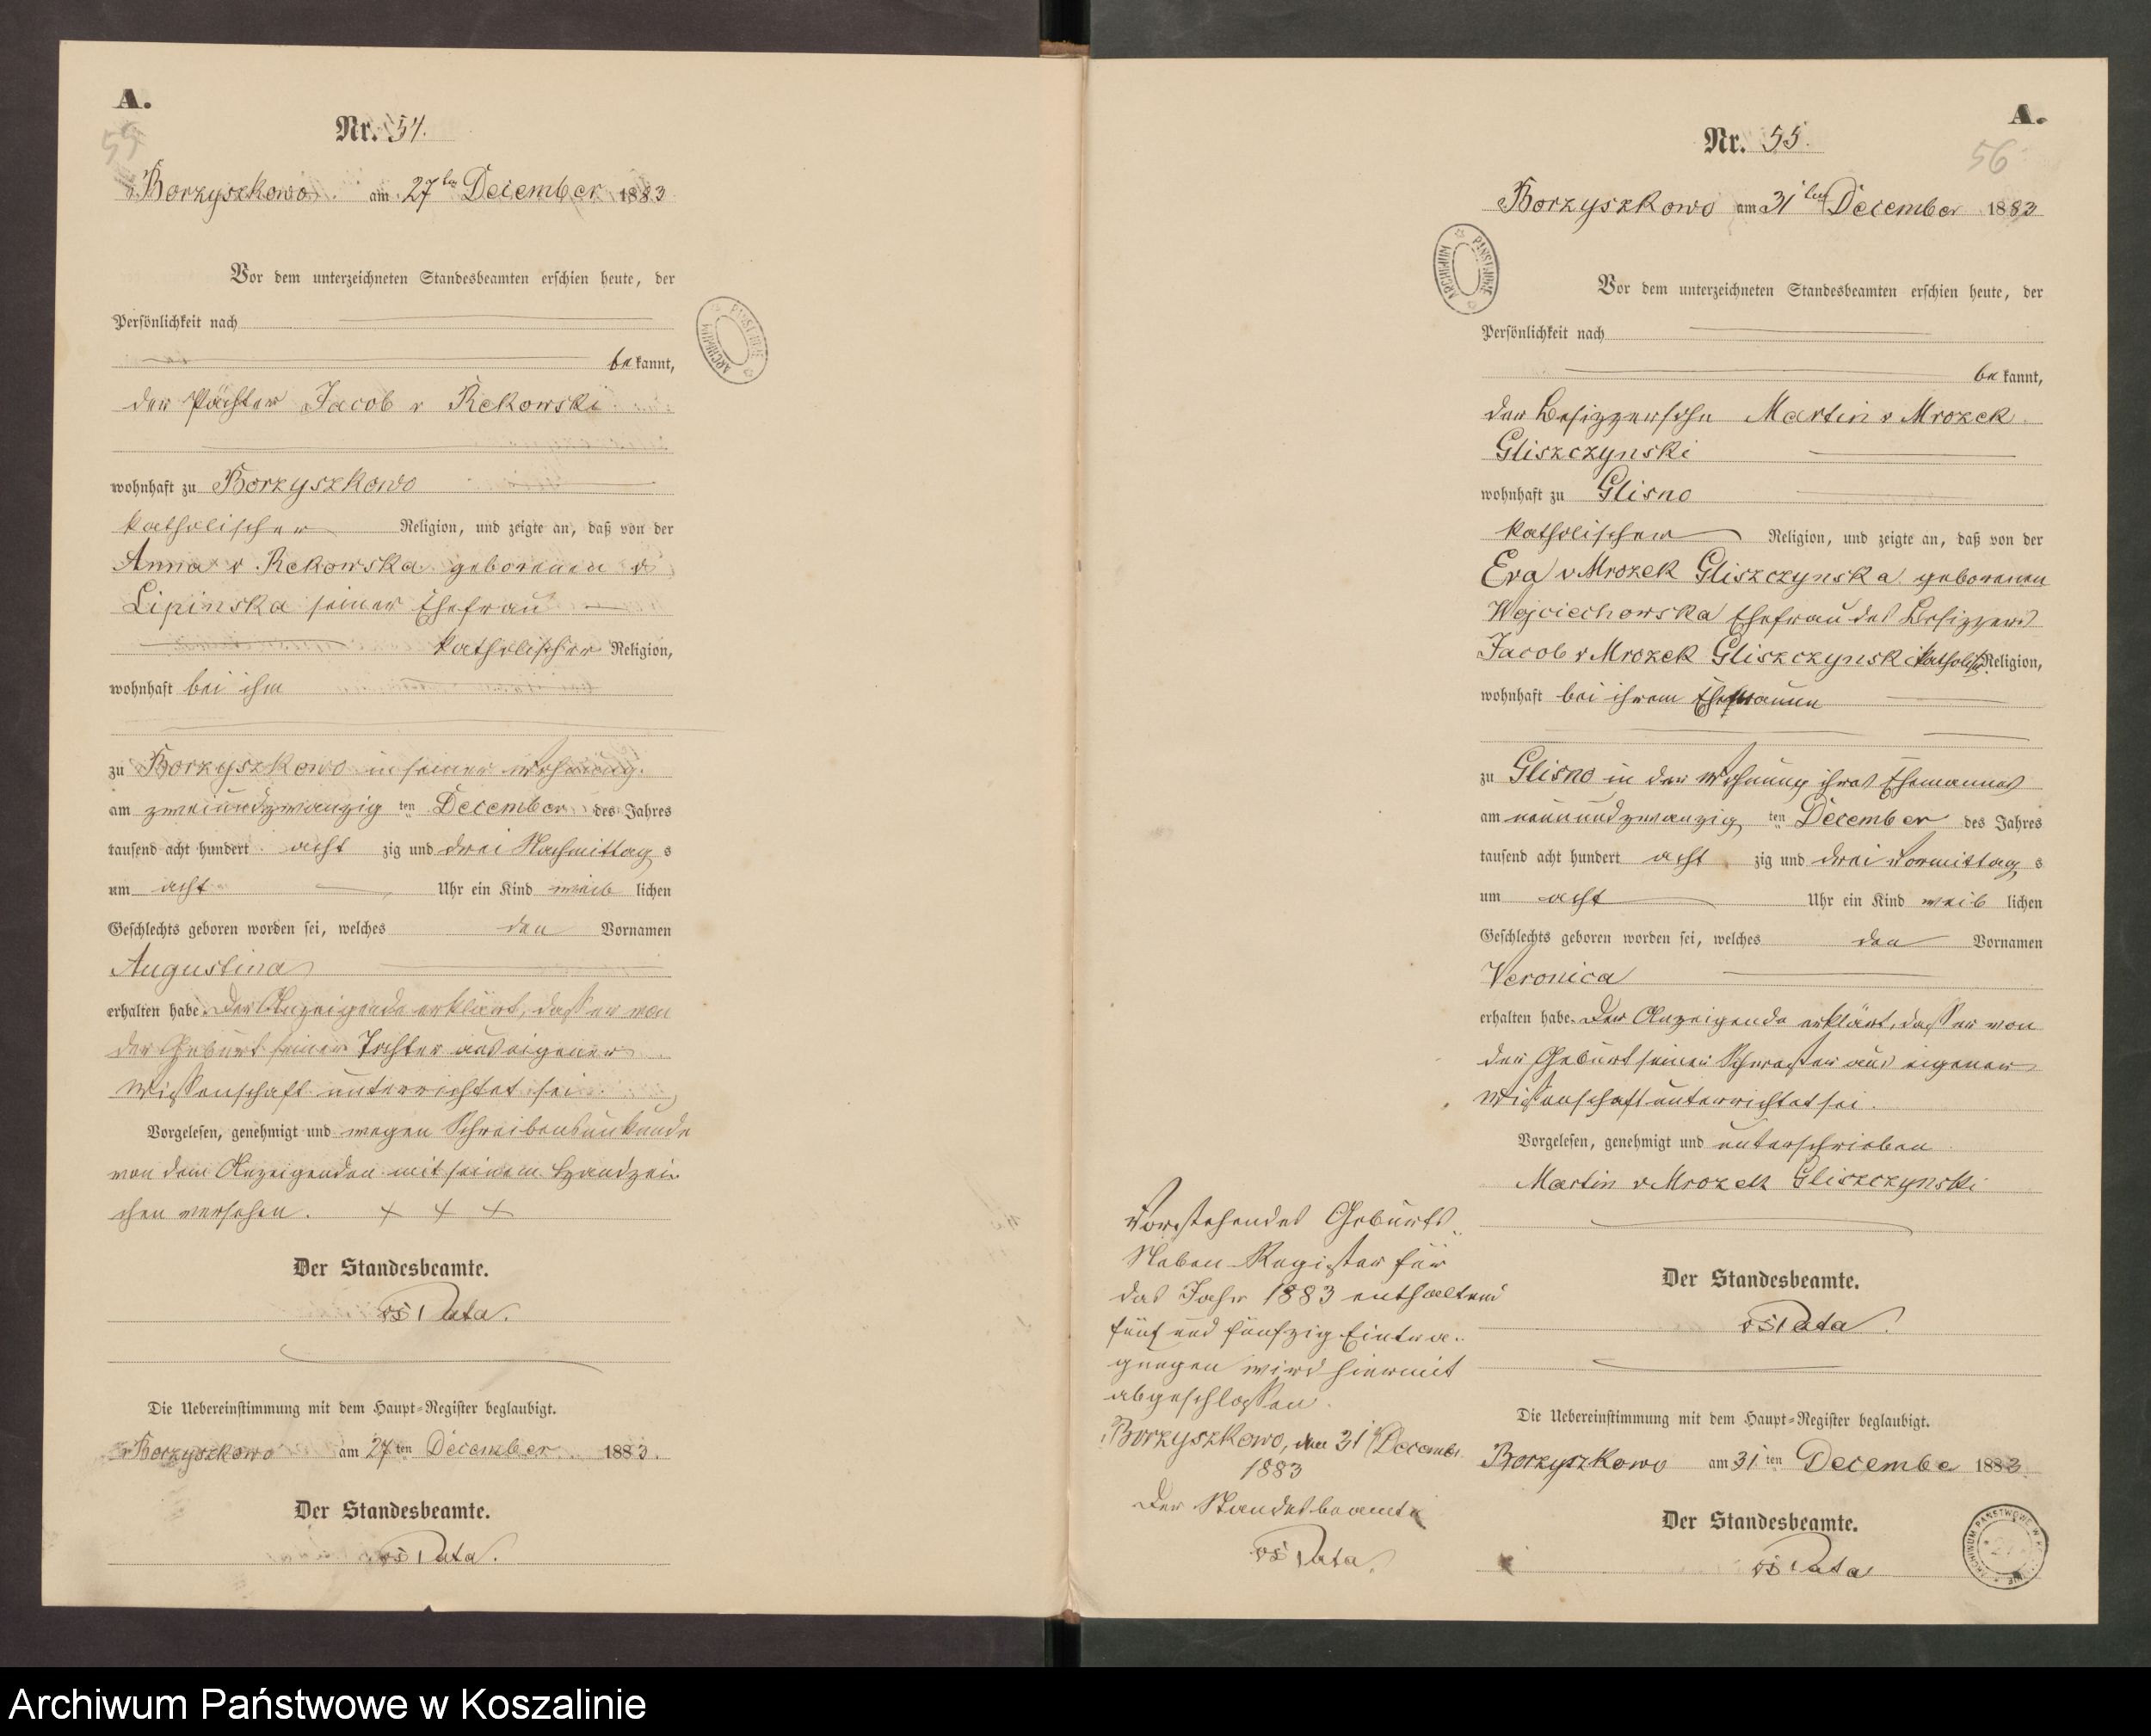 A.
55
Nr. 54.
Borzyszkowo am 27ten December 1883
Vor dem unterzeichneten Standesbeamten erschien heute, der
Persönlichkeit nach
bekannt,
der Pächter Jacob v Rekowski
wohnhaft zu Borzyszkowo
katholischer Religion, und zeigte an, daß von der
Anna v Rekowska geborenen v
Lipinska seiner Ehefrau
katholischer Religion,
wohnhaft bei ihm
zu Borzyszkowo in seiner Wohnung.
am zweiundzwanzig ten December des Jahres
tausend acht hundert acht zig und drei Nachmittag s
um acht Uhr ein Kind weib lichen
Geschlechts geboren worden sei, welches den Vornamen
Augustina
erhalten habe. Der Anzeigende erklärt, dass er von
der Geburt seiner Tochter aus eigener
Wissenschaft unterrichtet sei.
Vorgelesen, genehmigt und wegen Schreibensunkunde
von dem Anzeigenden mit seinem Handzei
chen versehen. + + +
Der Standesbeamte.
Pata.
Die Uebereinstimmung mit dem Haupt-Register beglaubigt.
Borzyszkowo am 27ten December 1883.
Der Standesbeamte.
Pata.
ARCHIWUM PAŃSTWOWE
A.
56
Nr. 55.
Borzyszkowo am 31ten December 1883
ARCHIWUM PAŃSTWOWE
Vor dem unterzeichneten Standesbeamten erschien heute, der
Persönlichkeit nach
bekannt,
der Besitzersohn Martin v Mrozek
Gliszczynski
wohnhaft zu Glisno
katholischer Religion, und zeigte an, daß von der
Eva v Mrozek Gliszczynska geborenen
Wojciechowska Ehefrau des Besitzers
Jacob v Mrozek Gliszczynski katholisch. Religion,
wohnhaft bei ihrem Ehemanne
zu Glisno in der Wohnung ihres Ehemannes
am neunundzwanzig ten December des Jahres
tausend acht hundert acht zig und drei Vormittag s
um acht Uhr ein Kind weib lichen
Geschlechts geboren worden sei, welches den Vornamen
Veronica
erhalten habe. Der Anzeigende erklärt, dass er von
der Geburt seiner Schwester aus eigener
Wissenschaft unterrichtet sei.
Vorgelesen, genehmigt und unterschrieben
Martin v Mrozek Gliszczynski
Der Standesbeamte.
Pata.
Die Uebereinstimmung mit dem Haupt-Register beglaubigt.
Borzyszkowo am 31ten Decembe 1883
Der Standesbeamte.
Pata
Vorstehendes Geburts
Neben-Register für
das Jahr 1883 enthaltend
fünf und fünfzig Eintra
gungen wird hiermit
abgeschlossen.
Borzyszkowo, den 31 Decembr.
1883
Der Standesbeamte
Pata.
Archiwum Państwowe w Koszalinie